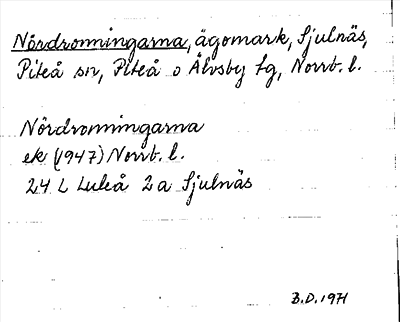 Nördronningarna, ägomark, Sjulnäs,
Piteå sn, Piteå o Älvsby tg, Norrb. l.
Nördronningarna
ek (1947) Norrb. l.
24 L Luleå 2a Sjulnäs
B.D. 1971